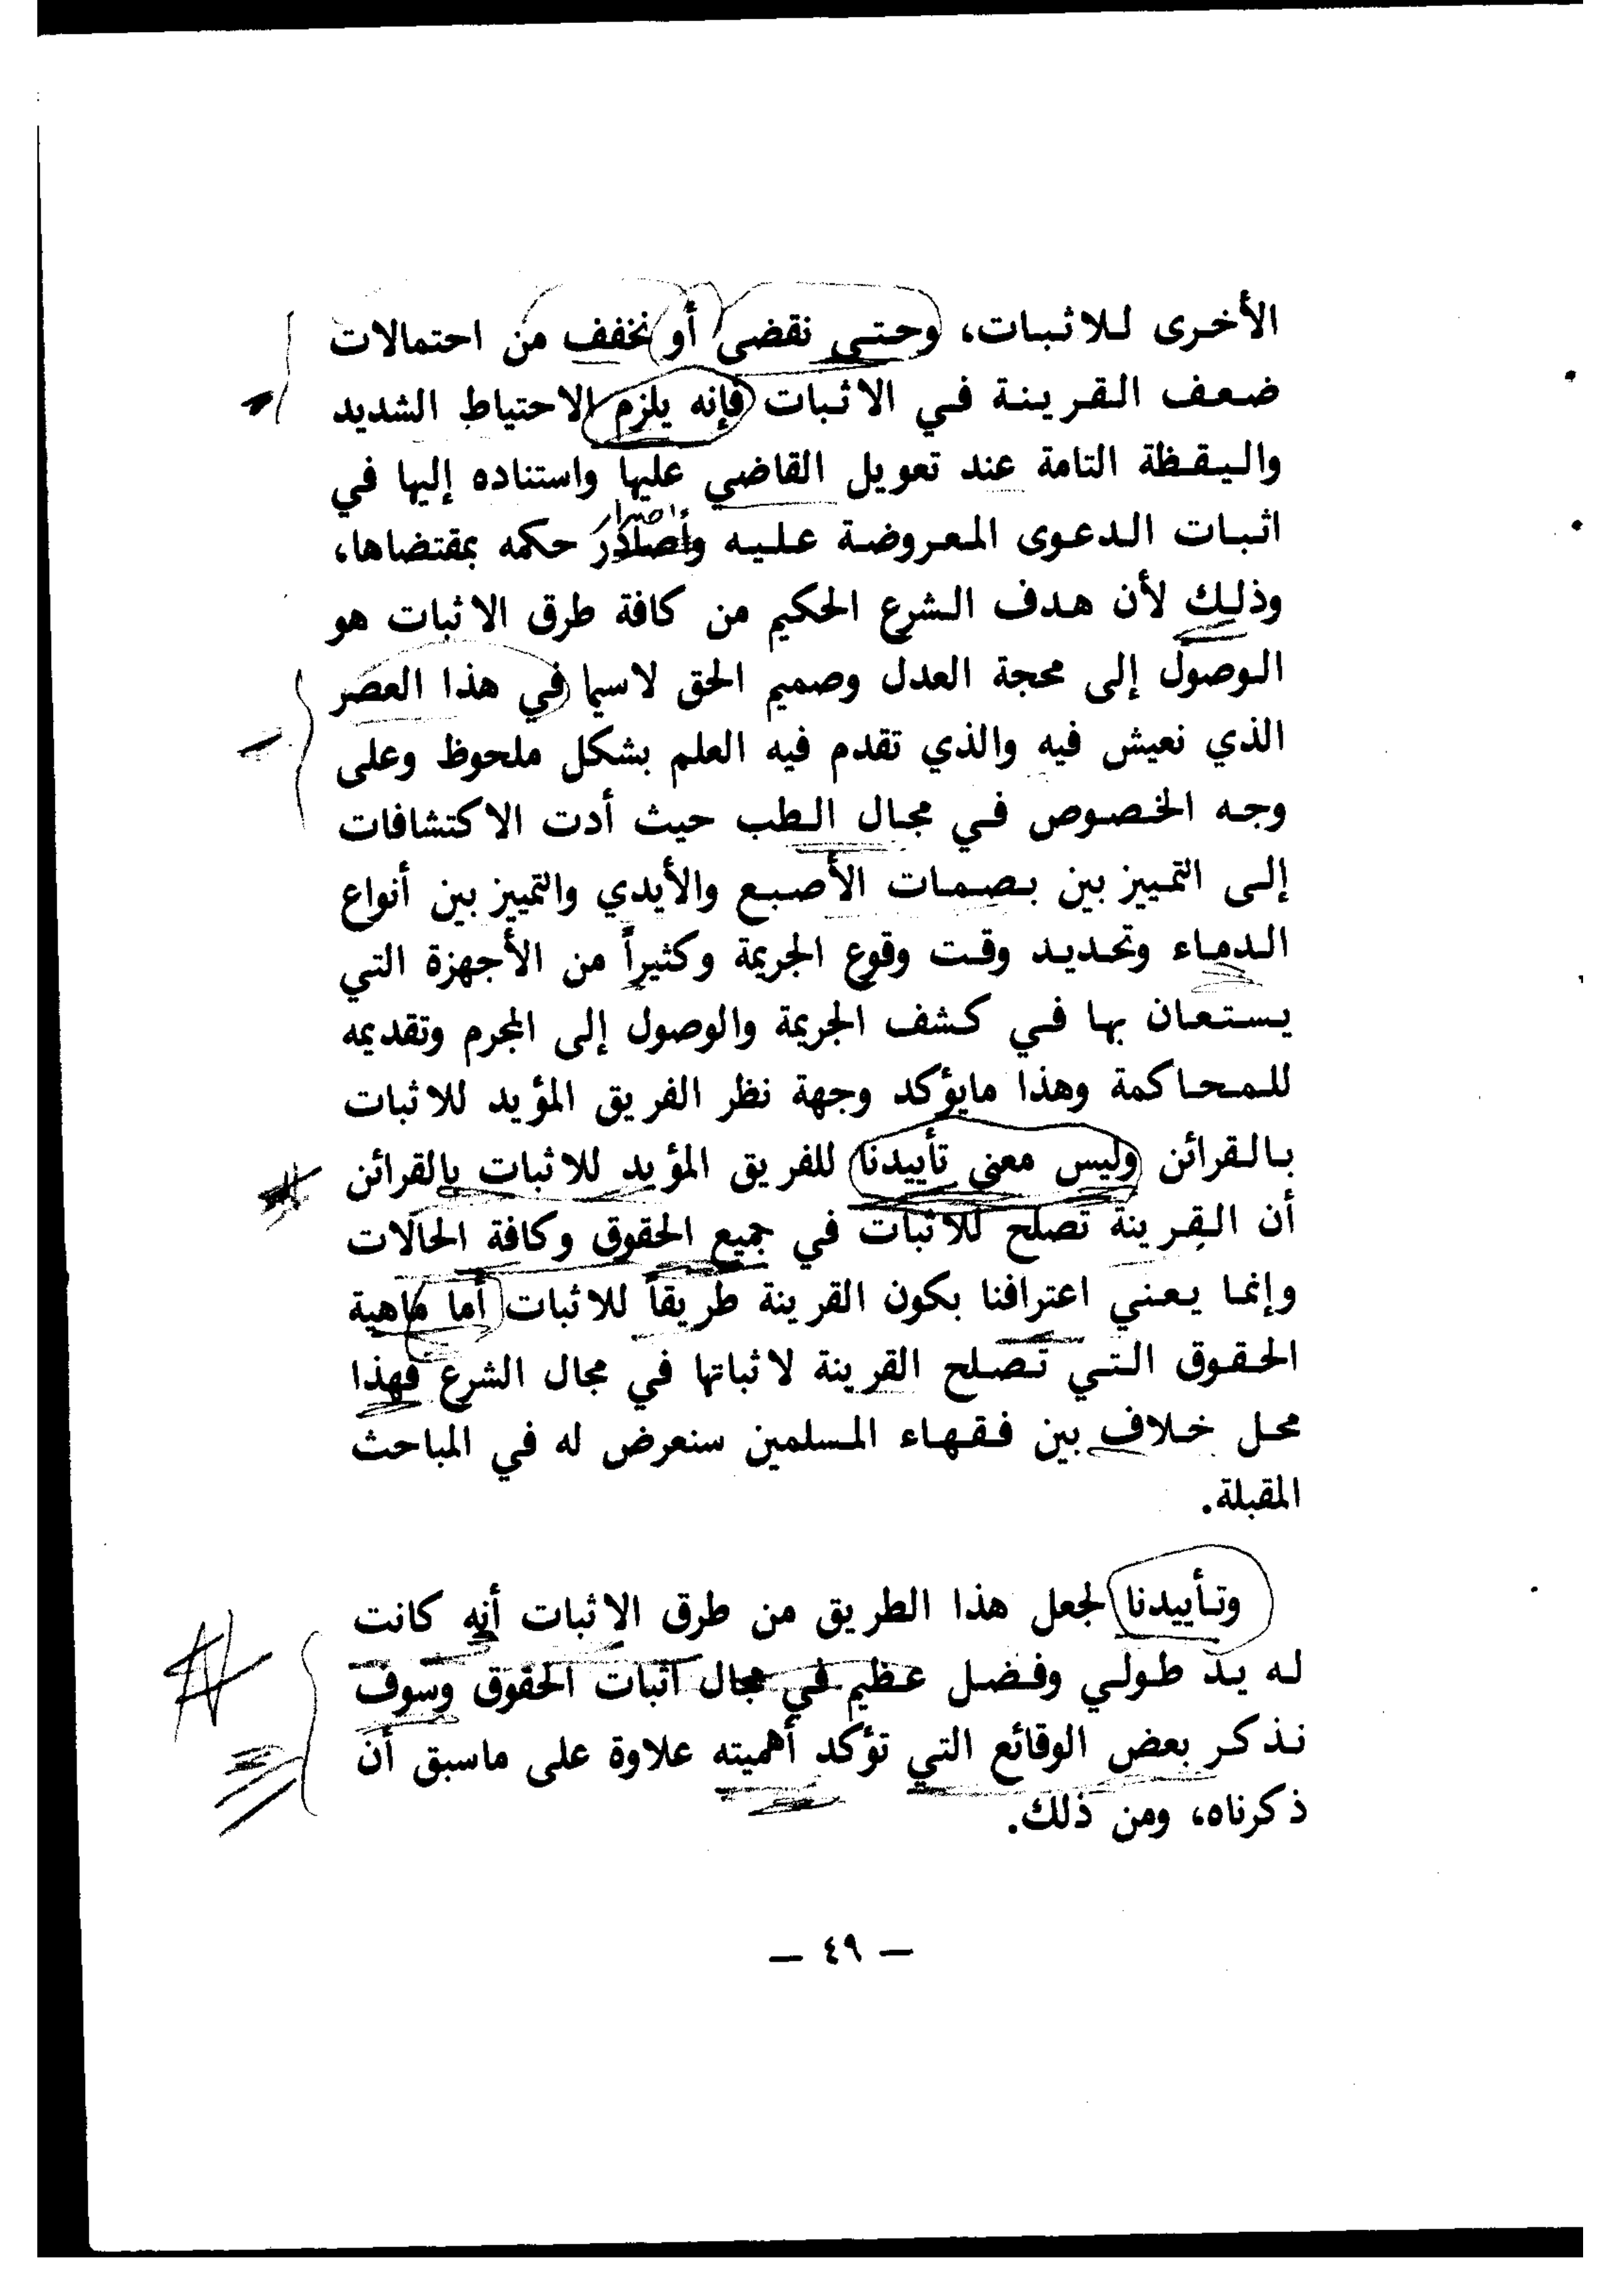 الأخرى للاثبات، وحتى نقضى أو نخفف من احتمالات
ضعف القرينة في الاثبات فإنه يلزم الاحتياط الشديد
واليقظة التامة عند تعويل القاضي عليها واستناده إليها في
اثبات الدعوى المعروضة عليه وأصدار حكمه بمقتضاها،
وذلك لأن هدف الشرع الحكيم من كافة طرق الاثبات هو
الوصول إلى محجة العدل وصميم الحق لاسيما في هذا العصر
الذي نعيش فيه والذي تقدم فيه العلم بشكل ملحوظ وعلى
وجه الخصوص في مجال الطب حيث أدت الاكتشافات
إلى التمييز بين بصمات الأصبع والأيدي والتمييز بين أنواع
الدماء وتحديد وقت وقوع الجريمة وكثيراً من الأجهزة التي
يستعان بها في كشف الجريمة والوصول إلى المجرم وتقديمه
للمحاكمة وهذا مايؤكد وجهة نظر الفريق المؤيد للاثبات
بالقرائن وليس معنى تأييدنا للفريق المؤيد للاثبات بالقرائن
أن القرينة تصلح للاثبات في جميع الحقوق وكافة الحالات
وإنما يعني اعترافنا بكون القرينة طريقاً للاثبات أما ماهية
الحقوق التي تصلح القرينة لاثباتها في مجال الشرع فهذا
محل خلاف بين فقهاء المسلمين سنعرض له في المباحث
المقبلة.
وتأييدنا لجعل هذا الطريق من طرق الاثبات أنه كانت
له يد طولي وفضل عظيم في مجال اثبات الحقوق وسوف
نذكر بعض الوقائع التي تؤكد أهميته علاوة على ماسبق أن
ذكرناه، ومن ذلك.
— ٤٩ —